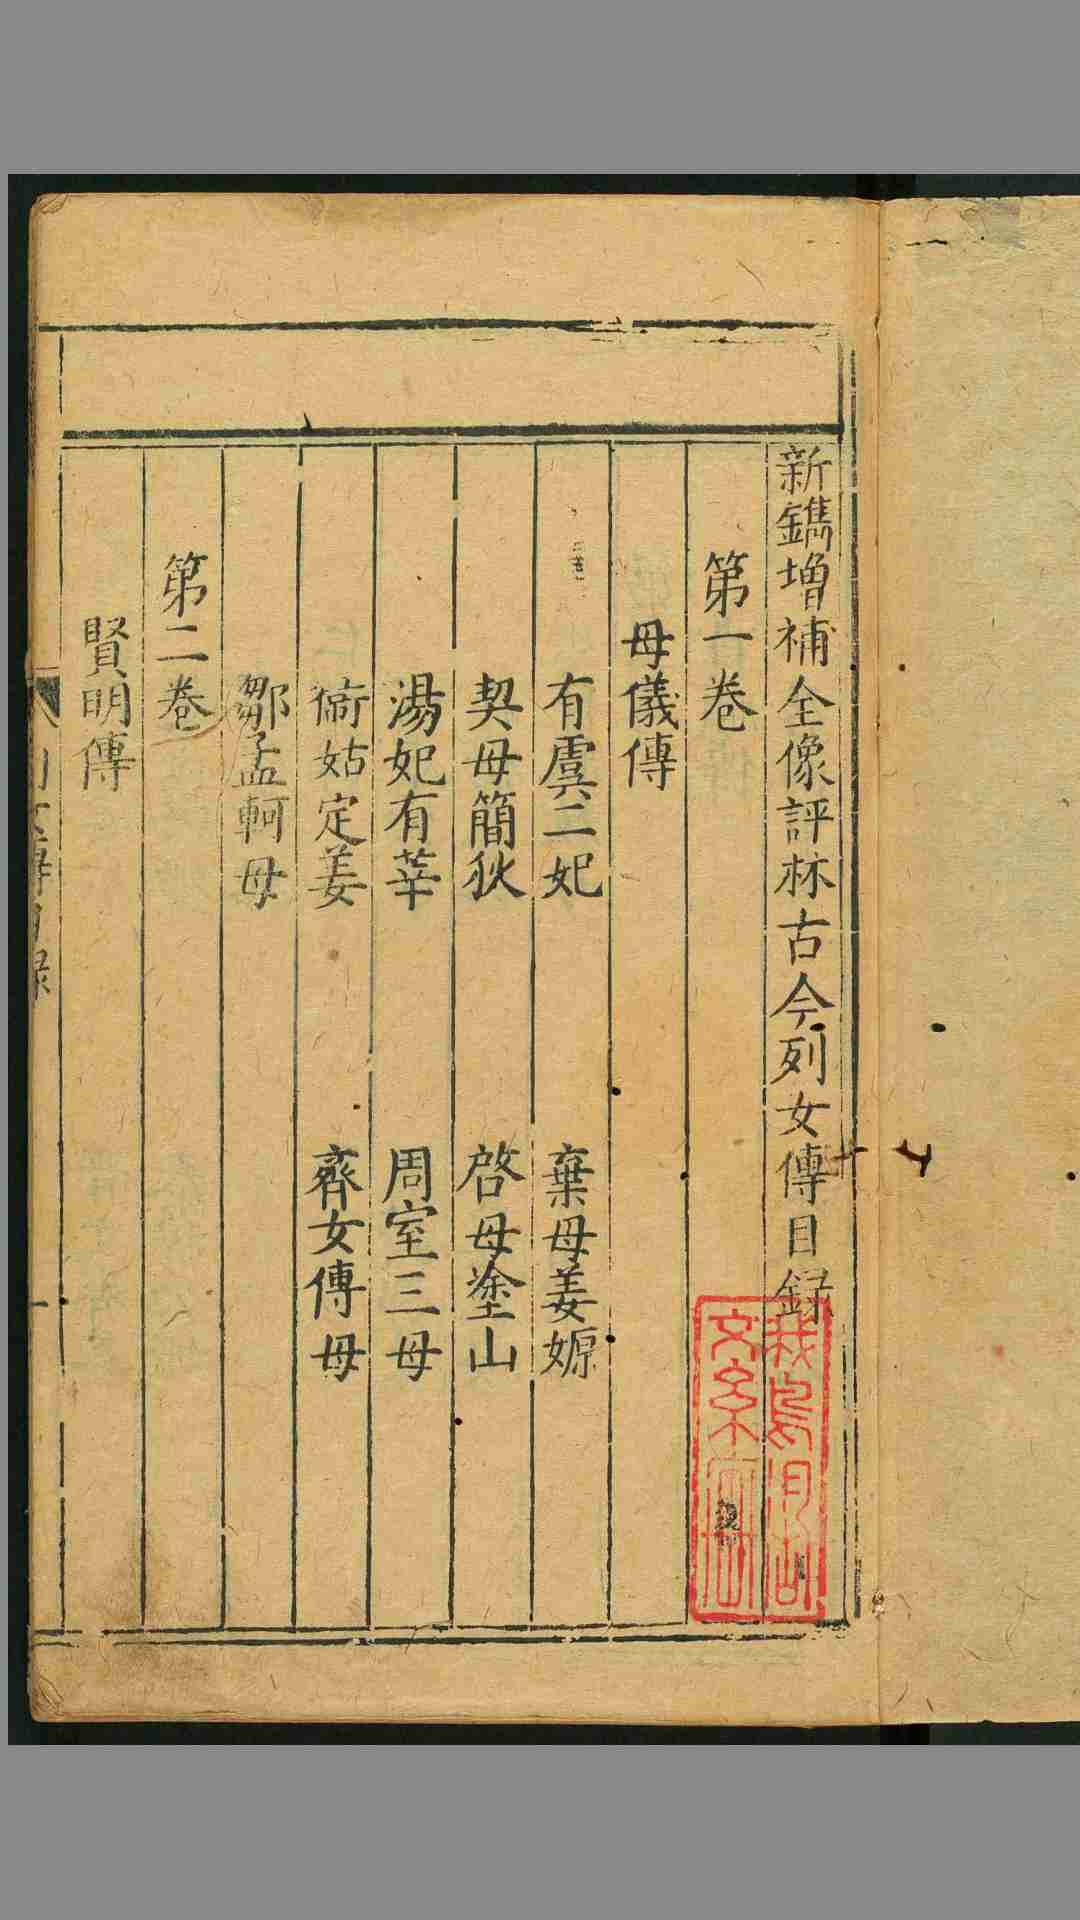 新鐫増補全像評林古今列女傳目録
第一卷
母儀傳
有虞二妃
棄母姜嫄
契母簡狄
啓母塗山
湯妃有莘
周室三母
衞姑定姜
齊女傳母
鄒孟軻母
第二卷
賢明傳